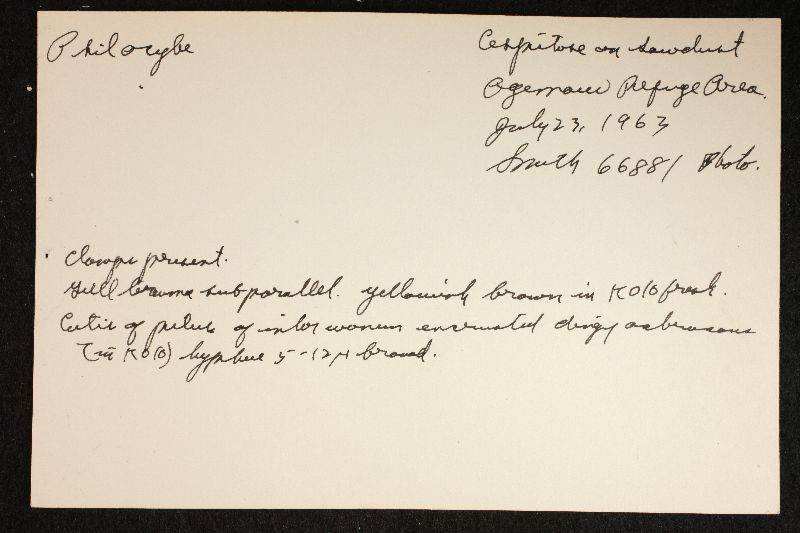 Psilocybe
Cespitose on sawdust
Ogemaw Refuge Area.
July 23, 1963
Smith 66881 Photo.
Clamps present.
Gill trama subparallel. yellowish brown in KOH fresh.
Cutis of pileus of interwoven encrusted dingy ochraceous
(in KOH) hyphae 5-12 µ broad.